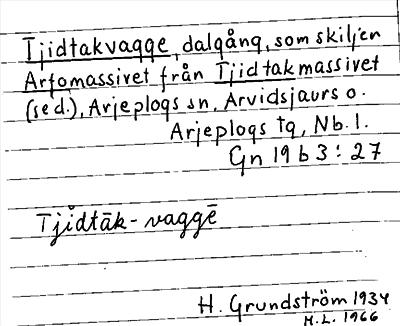 Tjidtakvagge, dalgång, som skiljer
Arfomassivet från Tjidtakmassivet
(se d.), Arjeplogs sn, Arvidsjaurs o.
Arjeplogs tg, Nb. l.
Gn 19 b 3:27
Tjidtāk-vaggē
H. Grundström 1934
M.L. 1966